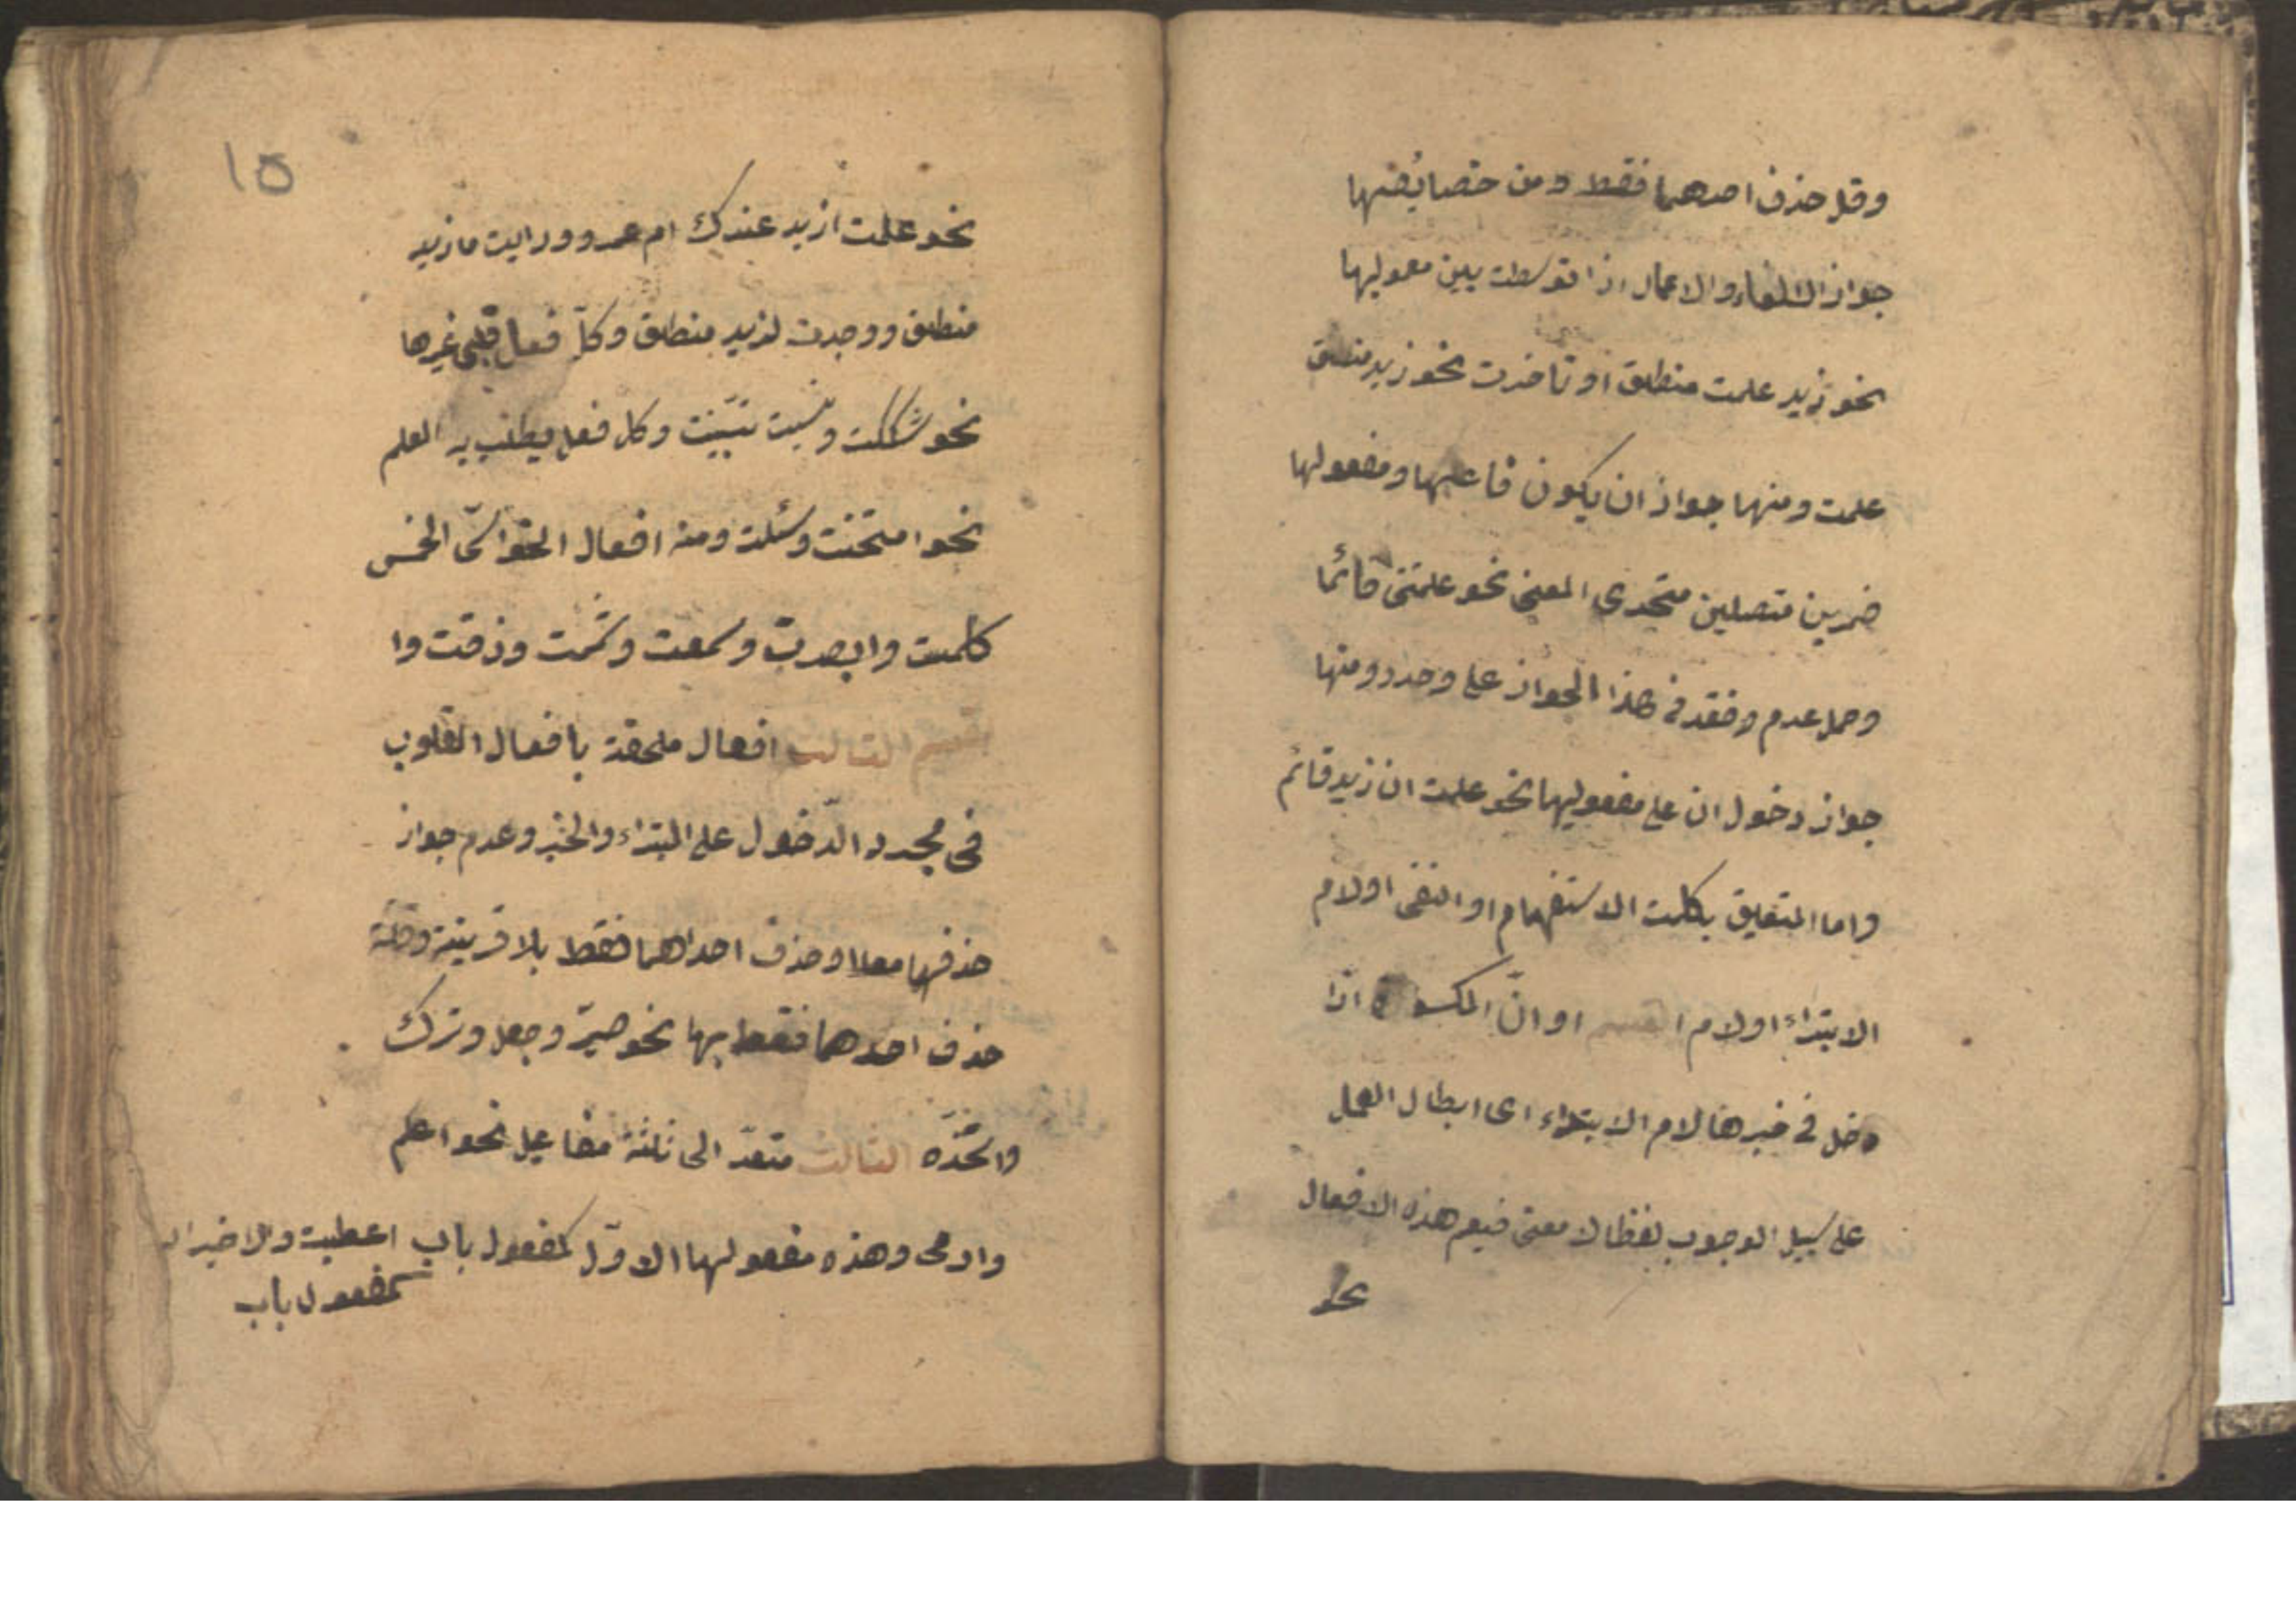 وقل حذف احدهما فقط ومن خصائصها
جواز الالغاء والاعمال اذا توسطت بين معموليها
نحو زيد علمت منطلق او تاخرت نحو زيد منطلق
علمت ومنها جواز ان يكون فاعلها ومفعولها
ضميرين متصلين متحدى المعنى نحو علمتنى قائما
وحمل عدم وفقد فى هذا الجواز على وجد ومنها
جواز دخول ان على مفعوليها نحو علمت ان زيد قائم
واما التعليق بكلمت الاستفهام او النفى او لام
الابتداء او لام القسم او انّ المكسورة اذا
دخل فى خبرها لام الابتداء اى ابطال العمل
على سبيل الوجوب لفظا لا معنى فيعم هذه الافعال
نحو
١٥
نحو علمت ازيد عندك ام عمرو ورايت ما زيد
منطلق ووجدت لزيد منطلق وكلّ فعل قلبى غيرها
نحو شككت ونسيت تبيّنت وكل فعل يطلب به العلم
نحو امتحنت وسئلت ومنه افعال الحواسّ الخمس
كلمست وابصرت وسمعت وشممت وذقت وا
لقسم الثالث افعال ملحقة بافعال القلوب
فى مجرد الدّخول على المبتداء والخبر وعدم جواز
حذفهما معا او حذف احداهما فقط بلا قرينة وقلة
حذف احدهما فقط بها نحو صيّر وجعل وترك
واتّخذ الثالث متعدّ الى ثلثة مفاعيل نحو اعلم
وارى وهذه مفعولها الاوّل كمفعول باب اعطيت والاخيران
كمفعول باب